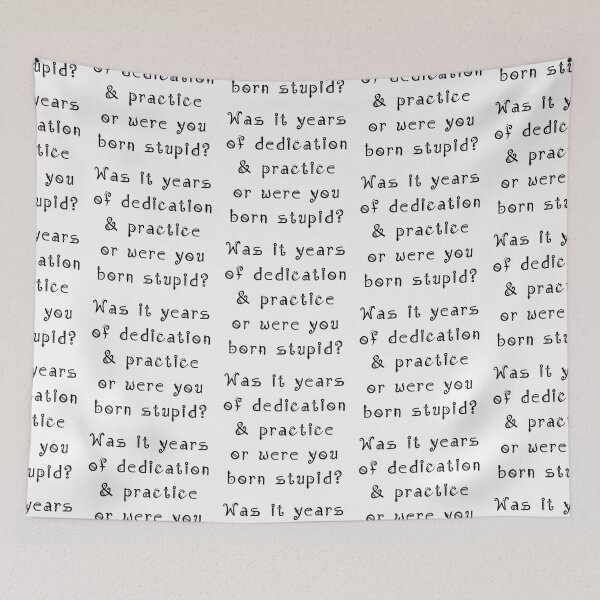 upid?
years
ation
tice
you
upid?
years
ation
tice
you
upid?
years
ation
tice
you
upid?
years
of dedication
& practice
or were you
born stupid?
Was it years
of dedication
& practice
or were you
born stupid?
Was it years
of dedication
& practice
or were you
born stupid?
Was it years
of dedication
& practice
or were you
born stupid?
Was it years
of dedication
& practice
or were you
born stupid?
Was it years
of dedication
& practice
or were you
born stupid?
Was it years
of dedication
& practice
or were you
born stupid?
Was it years
of dedication
& practice
or were you
born stupid?
Was it years
of dedication
& practice
or were you
born stupid?
Was it years
of dedication
& practice
or were you
born stupid?
Was it years
of dedication
& practice
or were you
born stu
Was it y
of dedic
& prac
or were
born st
Was it y
of dedic
& prac
or were
born st
Was it y
of dedic
& prac
or were
born st
Was it y